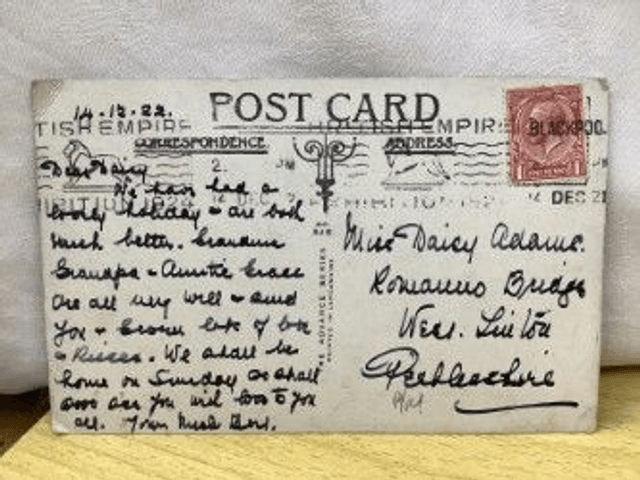 14.12.22.
POST CARD
TISH EMPIRE
BRITISH EMPIRE
BLACKPOO
CORRESPONDENCE
ADDRESS
2.
PM
IBITION 1924
14 DEC 2
EXHIBITION 192
14 DEC 21
1
Dear Daisy
We have had a
lovely holiday & are both
much better. Grandma
Grandpa & Auntie Grace
are all very well & send
you & lots of love
& Kisses. We shall be
home on Sunday & shall
you will love to you
all. Yours
ADVANCE SERIES
Miss Daisy Adams.
Romanno Bridge
West Linton
Peeblesshire